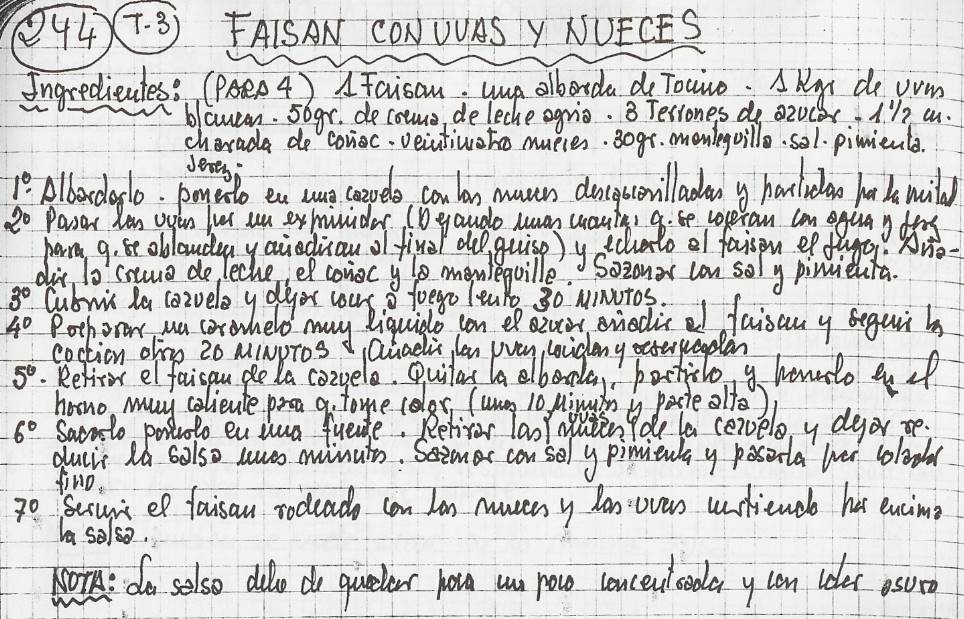 244 T-3 FAISAN CON UVAS Y NUECES
Ingredientes: (PARA 4) 1 Faisan. una alborda de Tocino. 1 Kgr de uvas
blancas. 50gr. de crema de leche agria. 3 Terrones de azucar. 1 1/2 cu.
charada de coñac. veinticuatro nueces. 30gr. mantequilla. sal. pimienta.
Jerez.
1º. Albardarlo. ponerlo en una cazuela con las nueces descascarilladas y partidas por la mitad
2º Pasar las uvas por un exprimidor (Dejando unas cuantas q. se coceran con agua y jerez
para q. se ablanden y añadiran al final del guiso) y echarlo al faisan el jugo. Aña-
dir la crema de leche, el coñac y la mantequilla. Sazonar con sal y pimienta.
3º Cubrir la cazuela y dejar cocer a fuego lento 30 MINUTOS.
4º Preparar un caramelo muy liquido con el azucar añadir al faisan y seguir la
coccion otros 20 MINUTOS y añadir las uvas cocidas y reservadas
5º. Retirar el faisan de la cazuela. Quitar la alborda, partirlo y ponerlo en el
horno muy caliente para q. tome color, (unos 10 Minutos y parte alta)
6º Sacarlo ponerlo en una fuente. Retirar las uvas nueces de la cazuela y dejar re-
ducir la salsa unos minutos. Sazonar con sal y pimienta y pasarla por colador
fino.
7º Servir el faisan rodeado con las nueces y las uvas vertiendo por encima
la salsa.
NOTA: La salsa debe de quedar para un poco concentrada y con color osuro